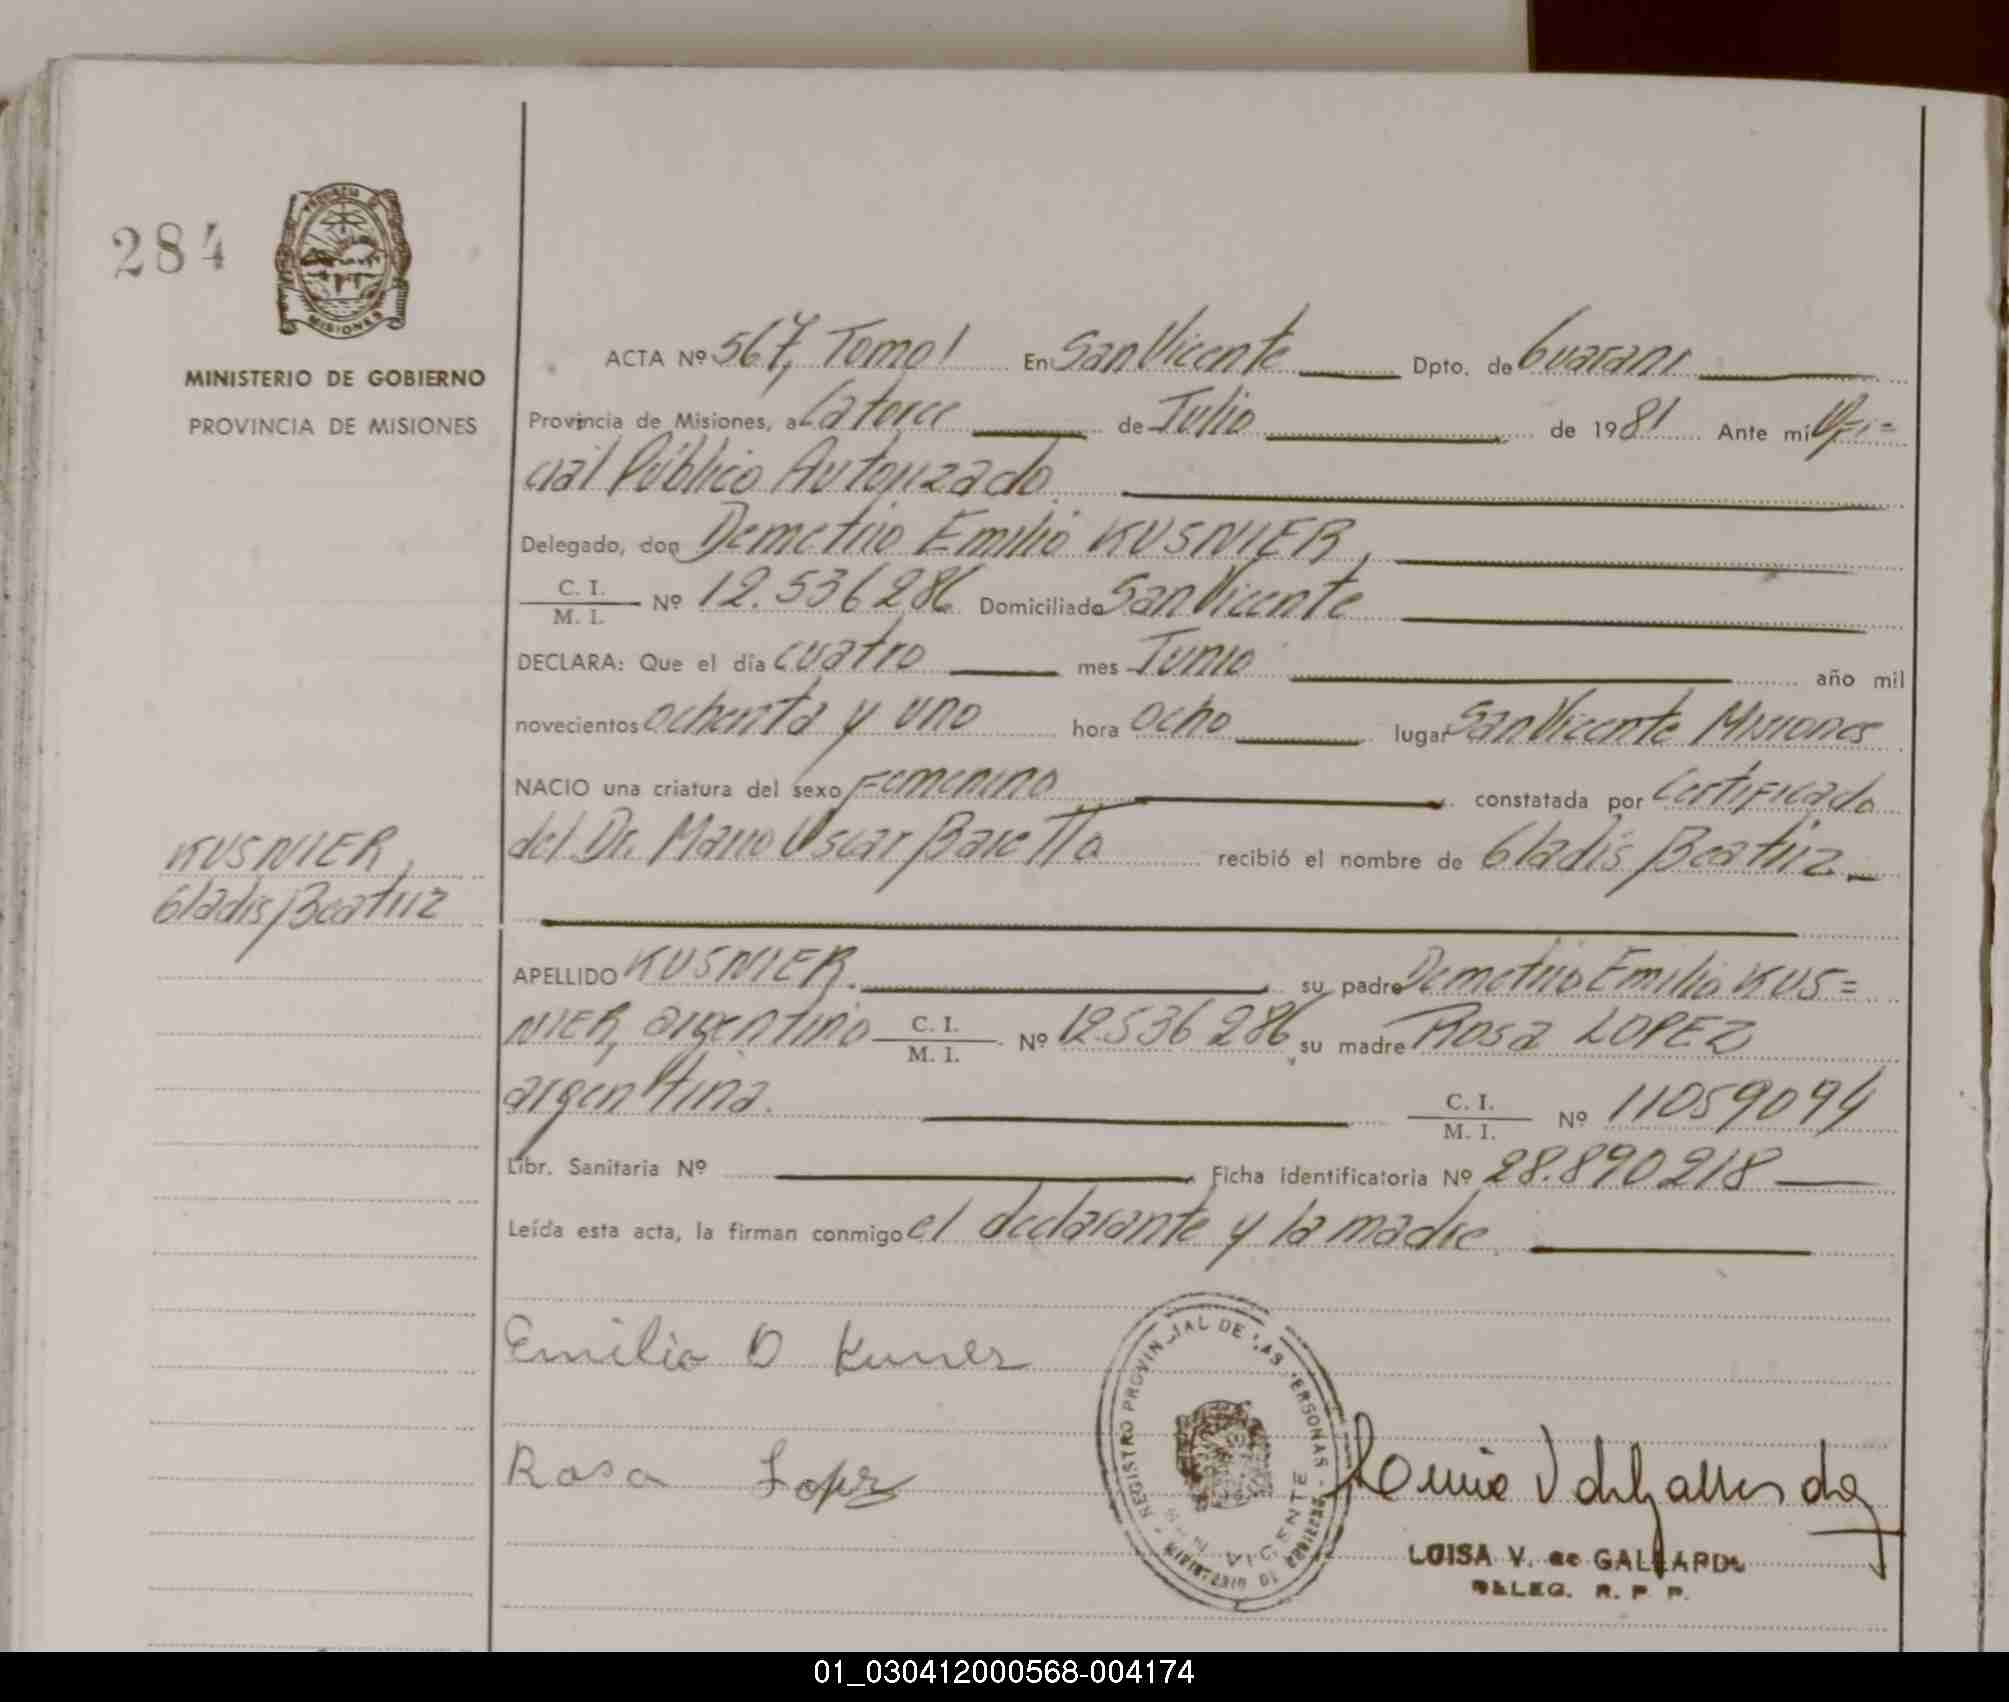 284
PROVINCIA DE
MISIONES
MINISTERIO DE GOBIERNO
PROVINCIA DE MISIONES
ACTA Nº 567, Tomo I En San Vicente Dpto. de Guarani
Provincia de Misiones, a Catorce de Julio de 1981 Ante mi Ofi=
cial Público Autorizado.
Delegado, don Demetrio Emilio KUSNIER,
C. I.
M. I. Nº 12.536286 Domiciliado San Vicente
DECLARA: Que el día cuatro mes Junio año mil
novecientos ochenta y uno hora ocho lugar San Vicente Misiones
NACIO una criatura del sexo Femenino constatada por Certificado
del Dr. Mario Oscar Baretto recibió el nombre de Gladis Beatriz.
KUSNIER,
Gladis Beatriz
APELLIDO KUSNIER. su padre Demetrio Emilio KUS=
NIER, argentino C. I.
M. I. Nº 12536286, su madre Rosa LOPEZ
argentina. C. I.
M. I. Nº 11059094
Libr. Sanitaria Nº Ficha identificatoria Nº 28.890218
Leída esta acta, la firman conmigo el declarante y la madre.
Emilio D Kusnier
Rosa Lopez
REGISTRO PROVINCIAL DE LAS PERSONAS
VICENTE
LUISA V. de GALLARDO
DELEG. R. P. P.
01_030412000568-004174